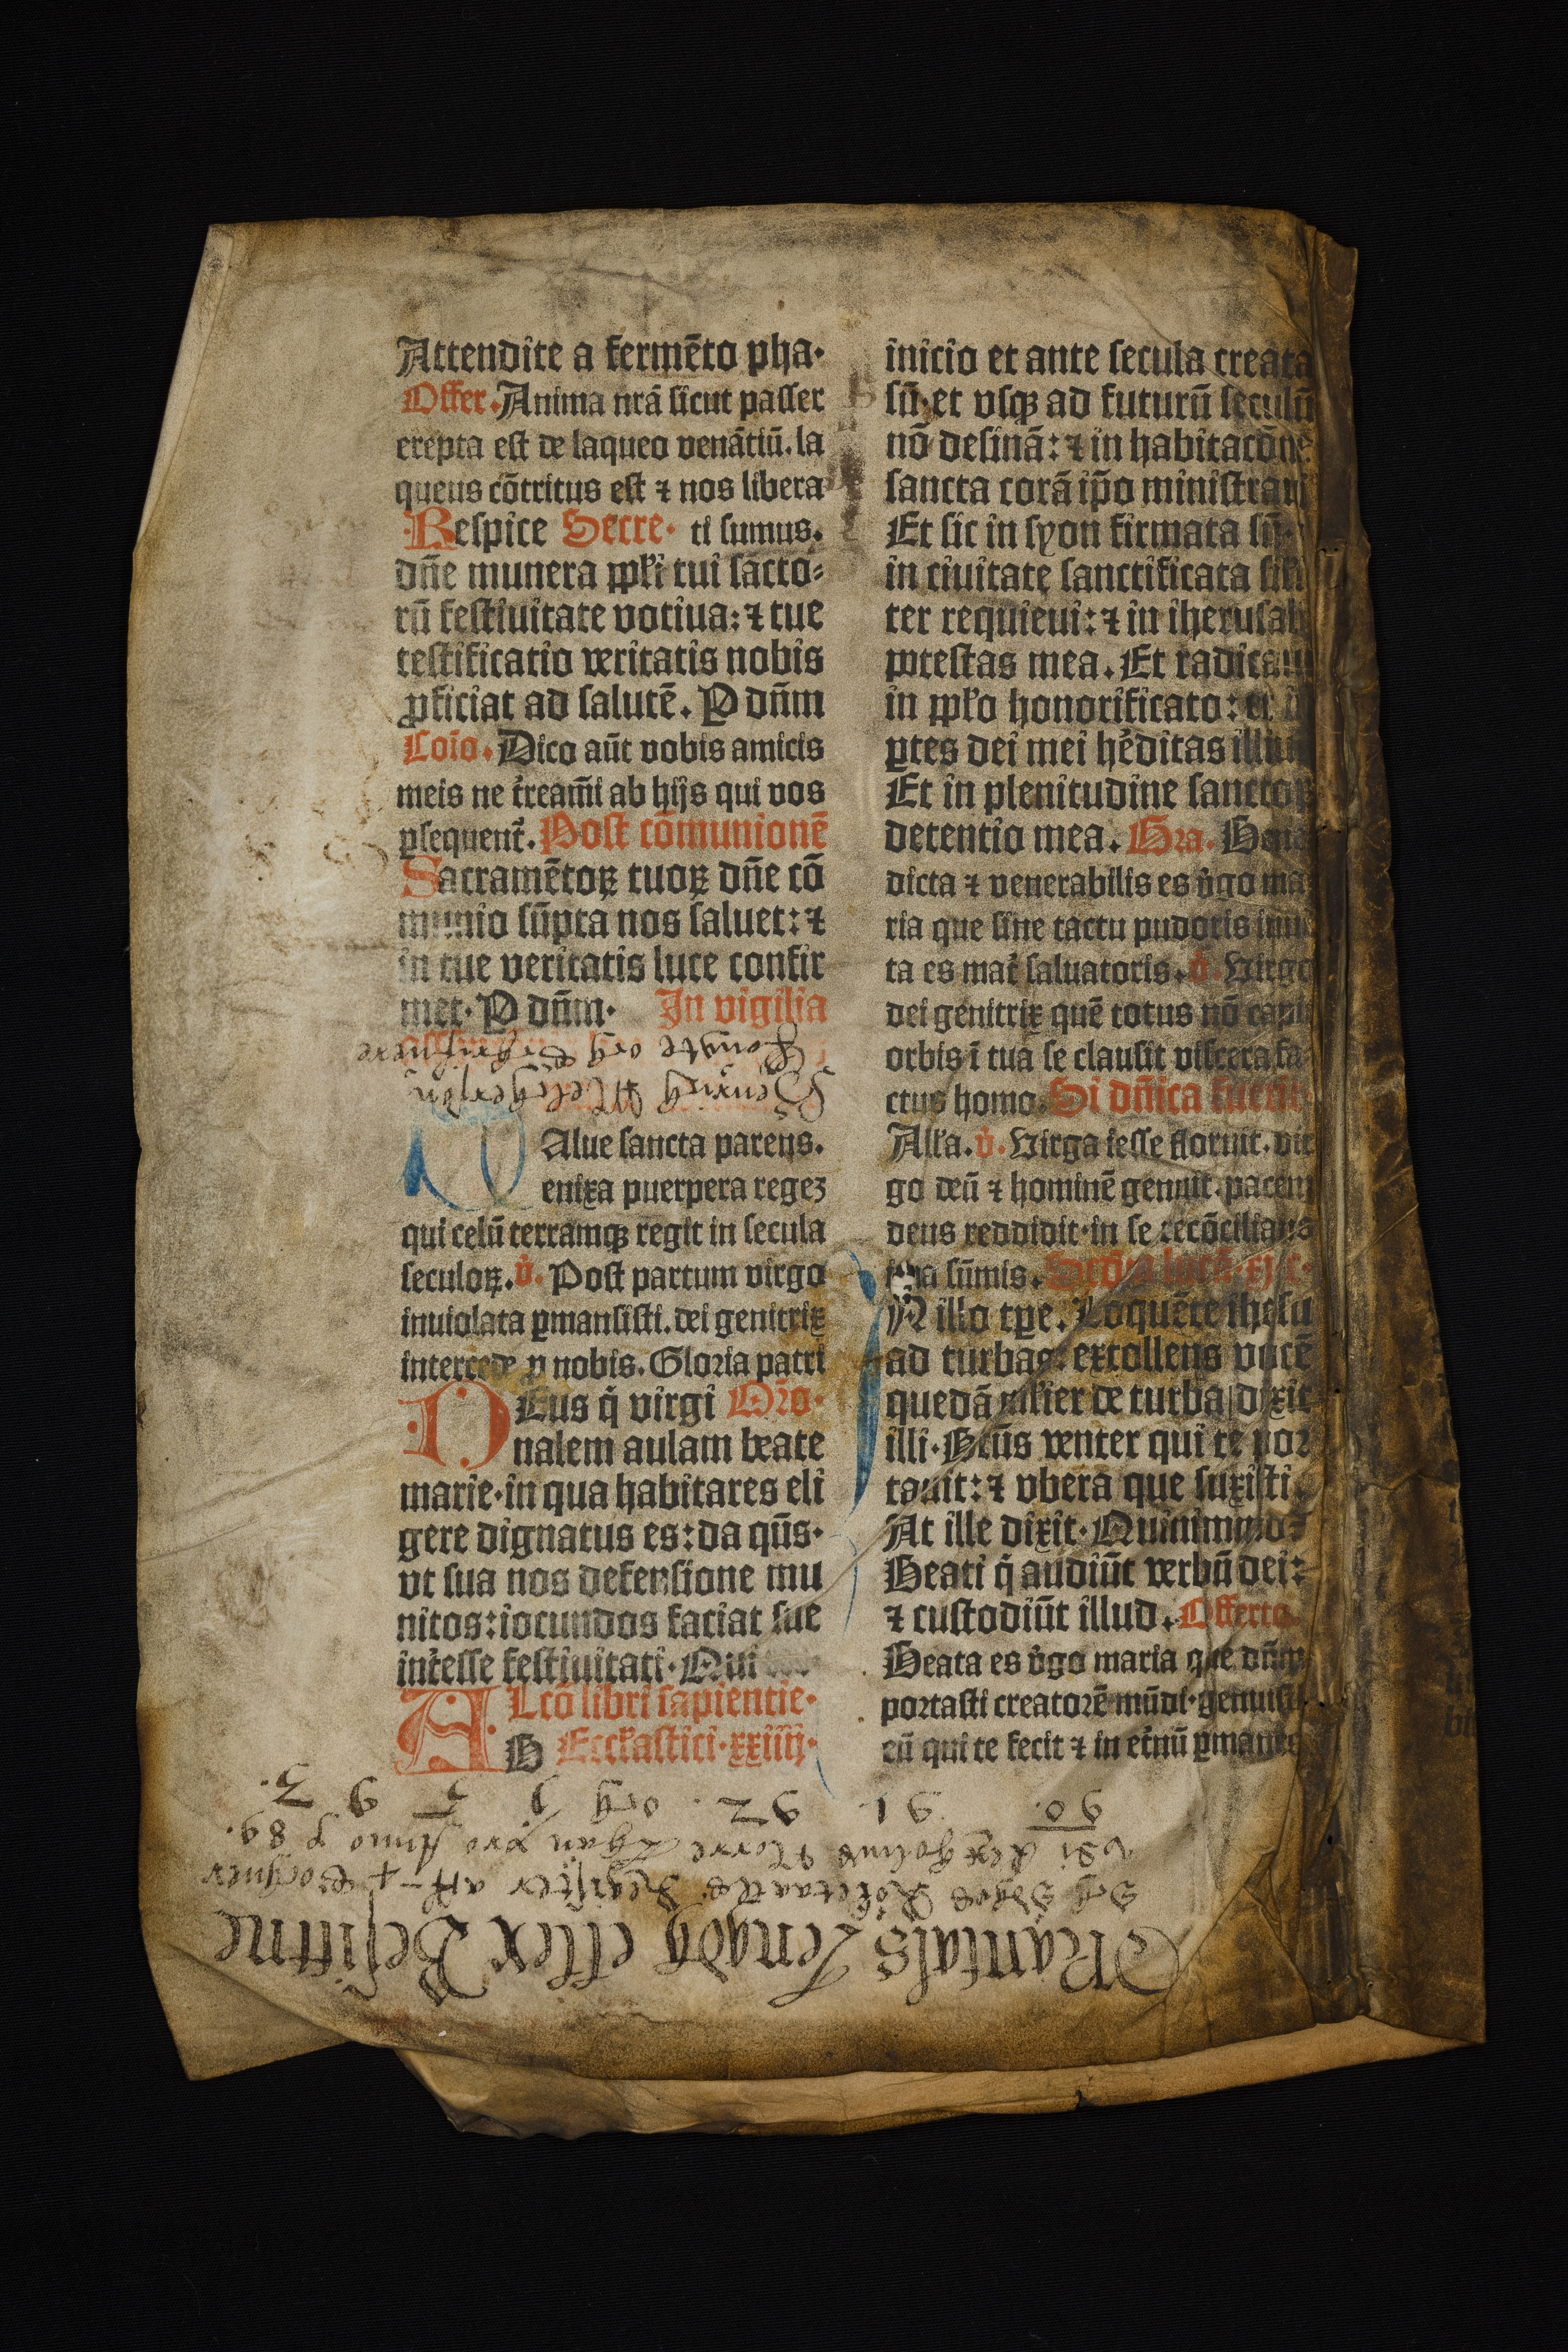 Attendite a fermēto pha·
Offer. Anima nrā sicut passer
erepta est de laqueo venātiū. la
queus cōtritus est ⁊ nos libera
Respice Secre· ti sumus.
dn̄e munera ppl̄i tui sācto⸗
rū festiuitate votiua: ⁊ tue
testificatio veritatis nobis
ꝓficiat ad salutē. P dn̄m
Coīo. Dico aūt vobis amicis
meis ne t̄reamī ab hijs qui vos
ꝑsequent̄. Post cōmunionē
Sacramētoꝝ tuoꝝ dn̄e cō
munio sūpta nos saluet: ⁊
in tue veritatis luce confir
met· P dn̄m· In vigilia
Alue sancta parens.
enixa puerpera regeʒ
qui celū terramqꝫ regit in secula
seculoꝝ. v̄. Post partum virgo
inuiolata ꝑmansisti. dei genitrix
intercede ꝓ nobis. Gloria patri
DEus q̄ virgi Oro·
nalem aulam beate
marie· in qua habitares eli
gere dignatus es: da qūs·
vt sua nos defensione mu
nitos: iocundos faciat sue
int̄esse festiuitati· Qui
ALcō libri sapientie·
B Eccl̄astici· xxiiij·
inicio et ante secula creata
sū· et vsqꝫ ad futurū seculū
nō desinā: ⁊ in habitacōne
sancta corā ip̄o ministraui
Et sic in syon firmata sū·
in ciuitate sanctificata sil̄i
ter requieui: ⁊ in iherusal̄
ptestas mea. Et radicaui
in ppl̄o honorificato: et ī
ꝑtes dei mei hēditas illius
Et in plenitudine sanctoꝝ
detentio mea. Gra. Bene
dicta ⁊ venerabilis es v̄go ma
ria que sine tactu pudoris inuē
ta es mat̄ saluatoris. v̄. Virgo
dei genitrix quē totus nō capit
orbis ī tua se clausit viscera fa
ctus homo. Si dn̄ica fuerit·
All̄a. v̄. Virga iesse floruit. vir
go deū ⁊ hominē genuit. pacem
deus reddidit· in se recōcilians
ima sūmis. Scd̄m lucā· xj c·
IN illo tp̄e. Loquēte ihesu
ad turbas: extollens vocē
quedā mul̄ier de turba dixit
illi· Btūs venter qui te por
tauit: ⁊ vbera que suxisti.
At ille dixit· Quinimmo:
Beati q̄ audiūt verbū dei:
⁊ custodiūt illud. Offerto.
Beata es v̄go maria que dn̄m
portasti creatorē mūdi· genuisti
eū qui te fecit ⁊ in et̄nū ꝑmanes
90. 91. 92. och